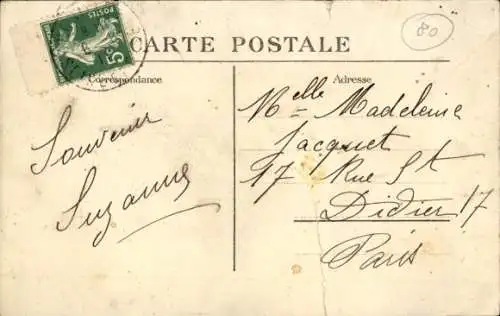 80
POSTES
5
CARTE POSTALE
Correspondance
Adresse
Souvenir
Suzanne
Melle Madeleine
Jacquet
17 Rue St
Didier 17
Paris